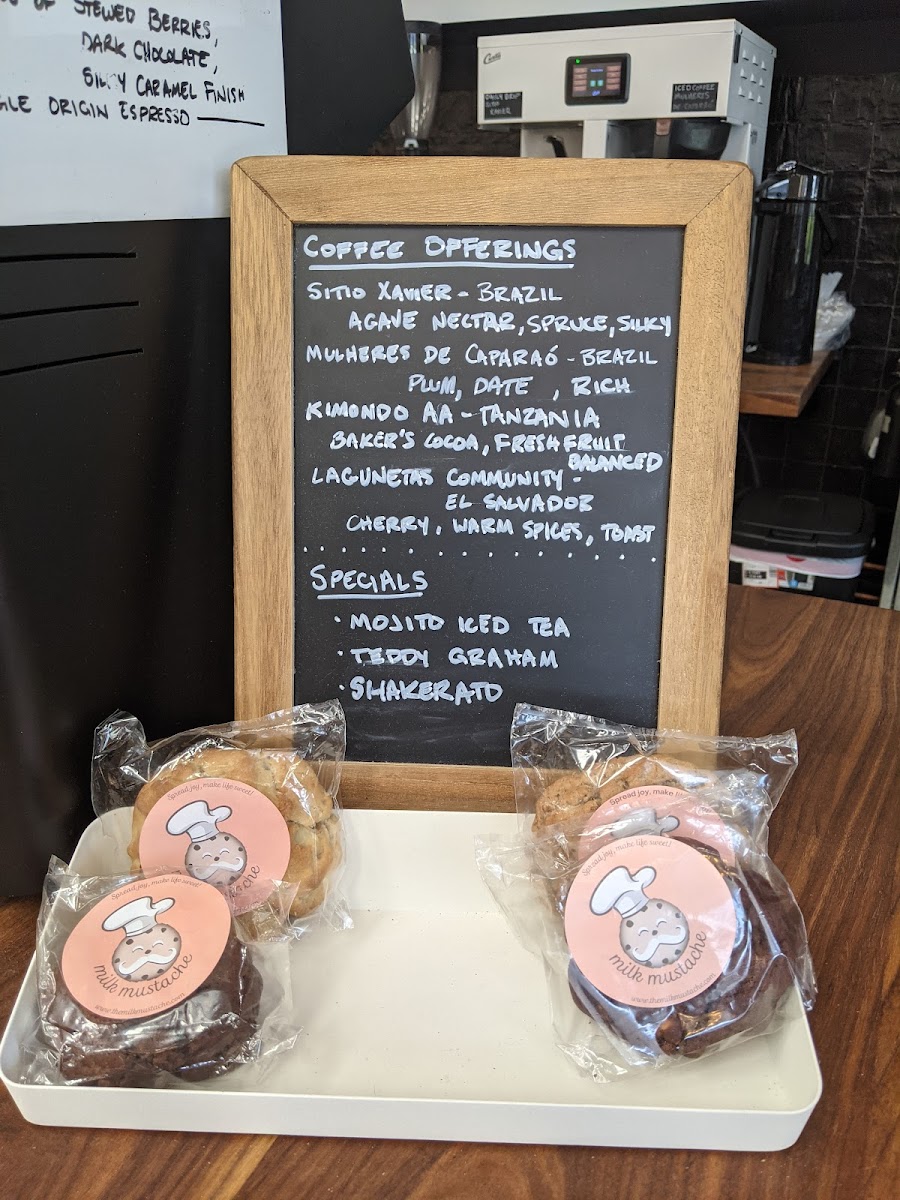 OF STEWED BERRIES,
DARK CHOCOLATE,
SILKY CARAMEL FINISH
GLE ORIGIN ESPRESSO
Curtis
DAILY BREW
SITIO
XAVIER
ICED COFFEE
MULHERES
DE CAPARAÓ
COFFEE OFFERINGS
SITIO XAVIER - BRAZIL
AGAVE NECTAR, SPRUCE, SILKY
MULHERES DE CAPARAÓ - BRAZIL
PLUM, DATE , RICH
KIMONDO AA - TANZANIA
BAKER'S COCOA, FRESH FRUIT
BALANCED
LAGUNETAS COMMUNITY -
EL SALVADOR
CHERRY, WARM SPICES, TOAST
SPECIALS
· MOJITO ICED TEA
· TEDDY GRAHAM
· SHAKERATO
Spread joy, make life sweet!
Spread joy, make life sweet!
milk mustache
www.themilkmustache.com
Spread joy, make li
Spread joy, make life sweet!
milk mustache
www.themilkmustache.com